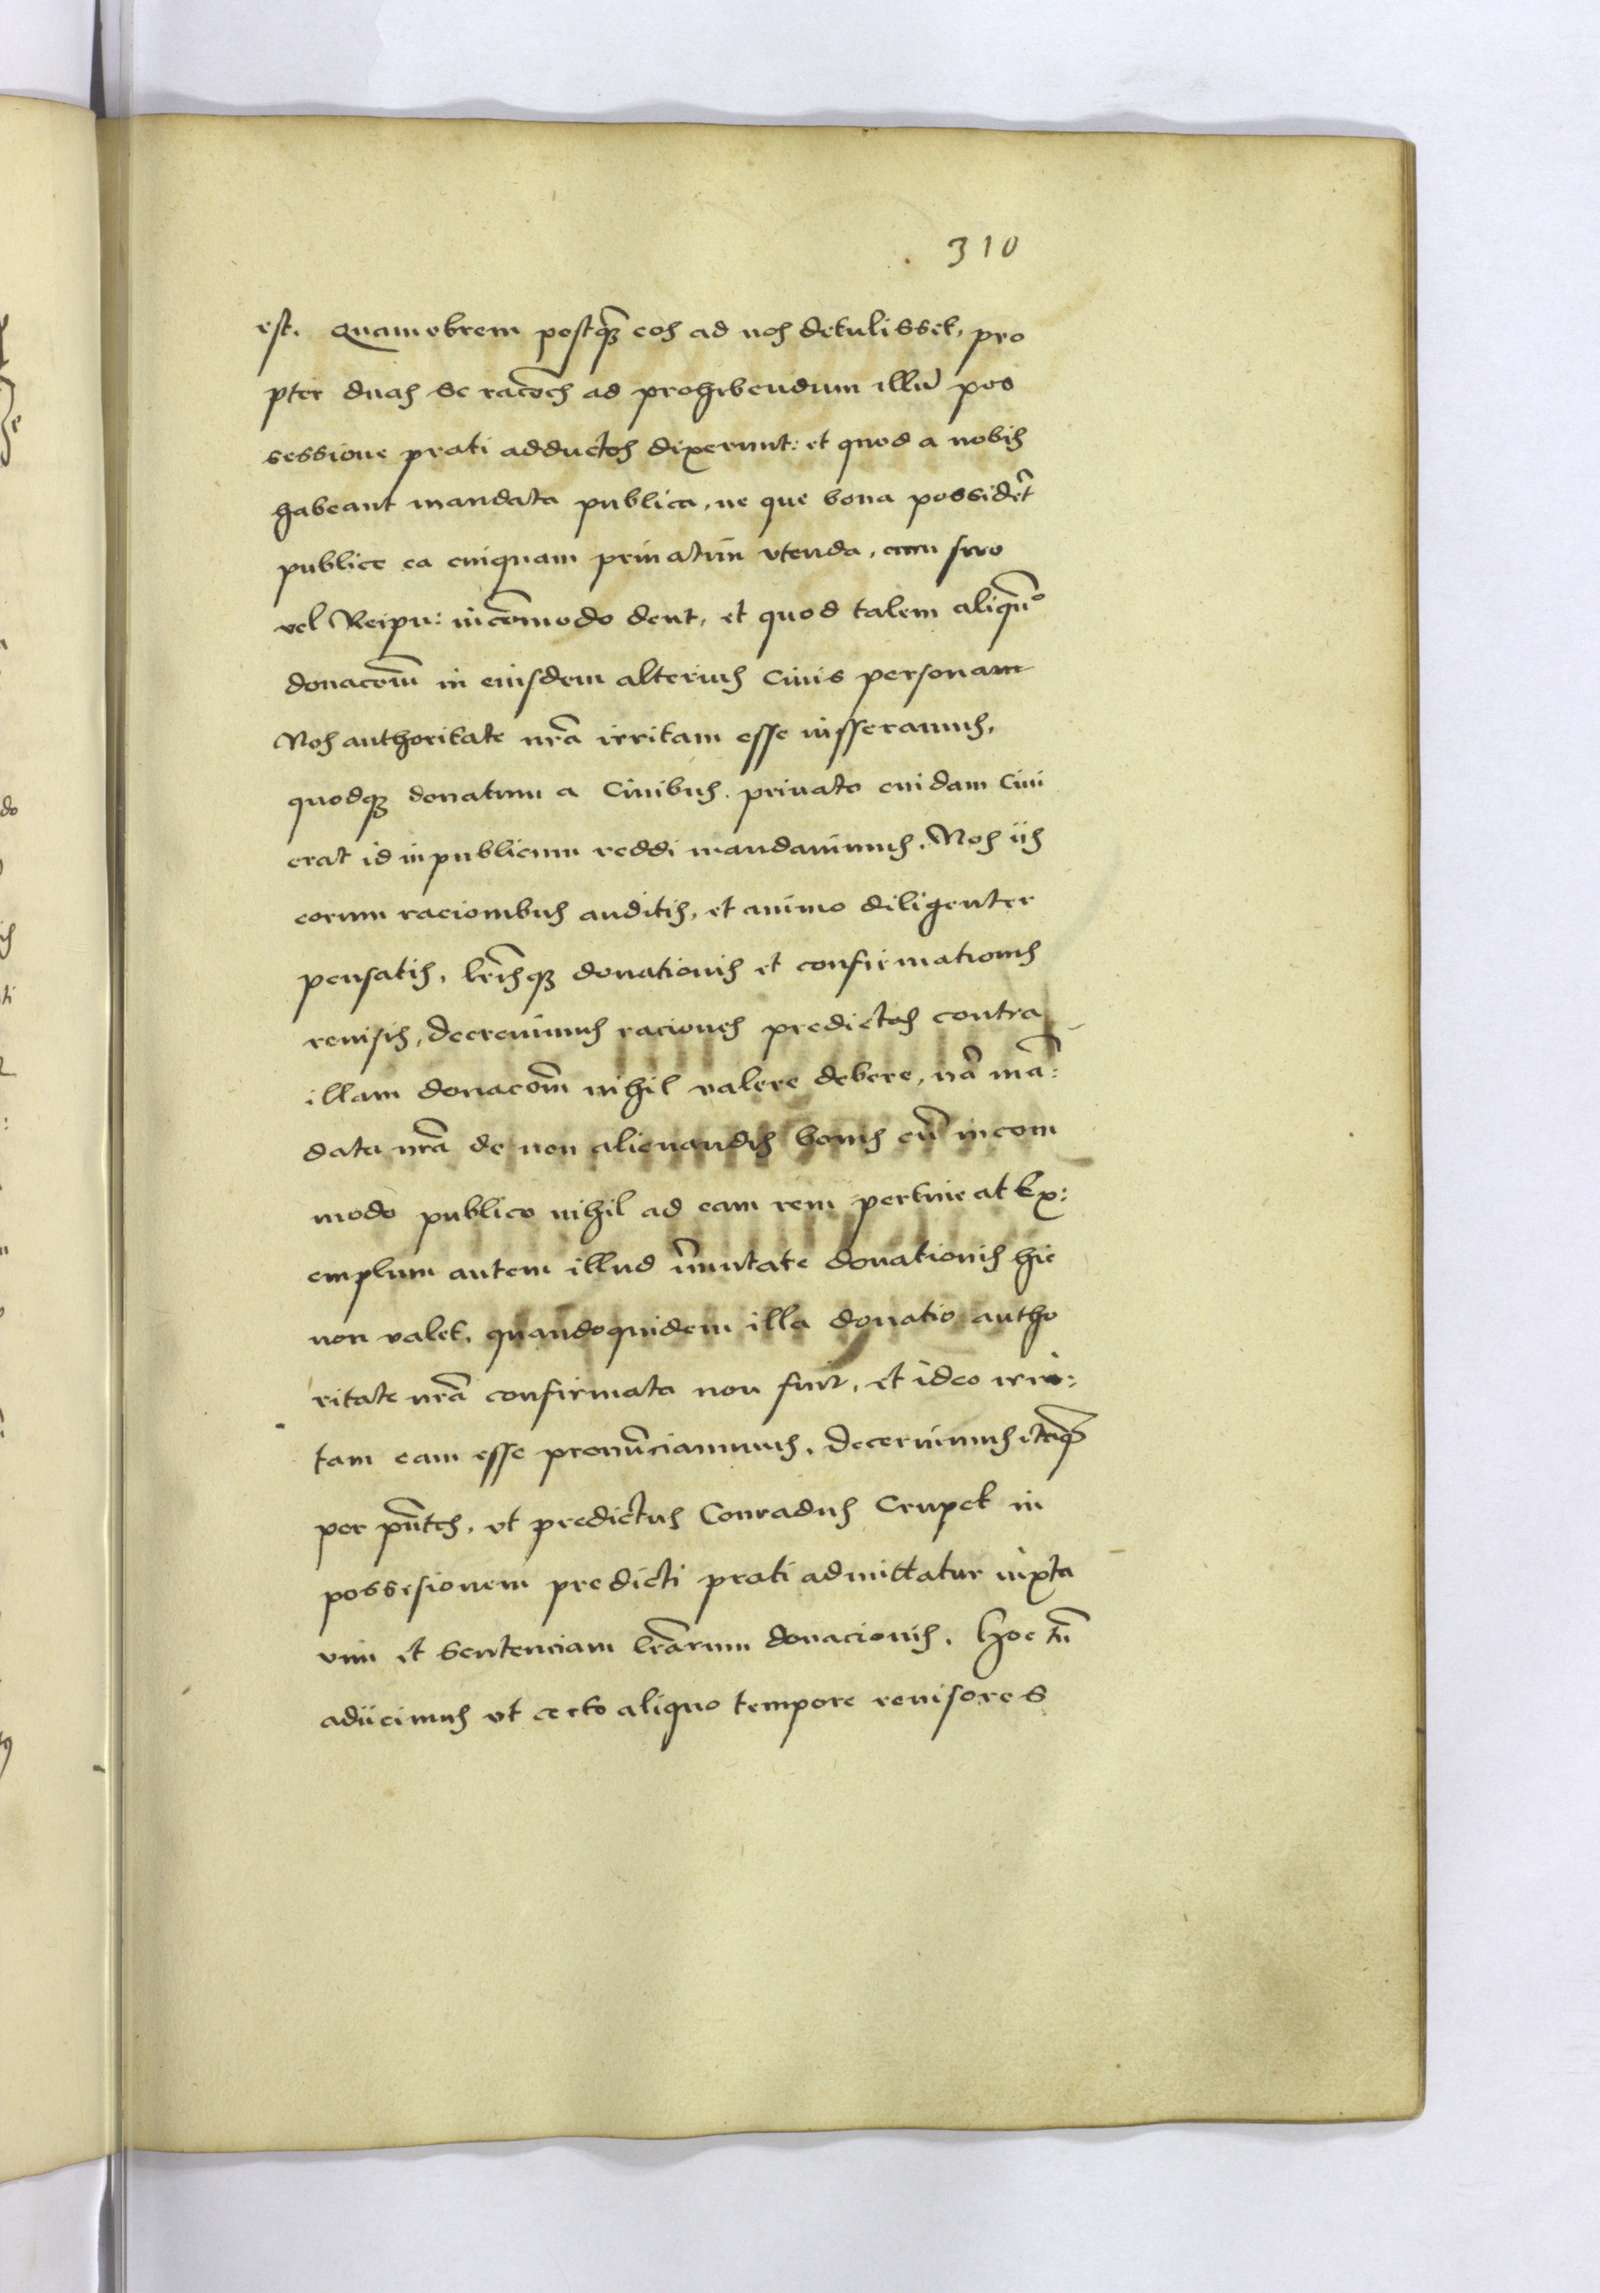 310
est. Quamobrem postq̃ eos ad nos detulisset, pro
pter duas se racões ad prohibendum illũ pos
sessione prati adductos dixerunt: et quod a nobis
habeant mandata publica, ne que bona possidẽt
publice ea cuiquam priuatim vtenda, cum suo
vel Reipu: incõmodo dent, et quod talem aliqñ
donacõem in eiusdem alterius Ciuis personam
Nos authoritate nrã irritam esse iusseramus,
quodq3 donatum a Ciuibus priuato cuidam Ciui
erat id in publicum reddi mandauimus. Nos iis
eorum racionibus auditis, et animo diligenter
pensatis, lrĩsq3 donationis et confirmationis
reuisis, decreuimus raciones predictas contra
illam donacõm nihil valere debere, nã mã:
data nrã de non alienandis bonis cũ incom
modo publico nihil ad eam rem pertineat Ex:
emplum autem illud ĩmutate donationis hic
non valet, quandoquidem illa donatio autho
ritate nrã confirmata non fuit, et ideo irri:
tam eam esse pronũciauimus. Decernimus itaq3
per pñtes, vt predictus Conradus Crupek in
possesionem predicti prati admittatur iuxta
vim et sentenciam lrãrum donacionis. Hoc tñ
adiicimus vt certo aliquo tempore reuisores